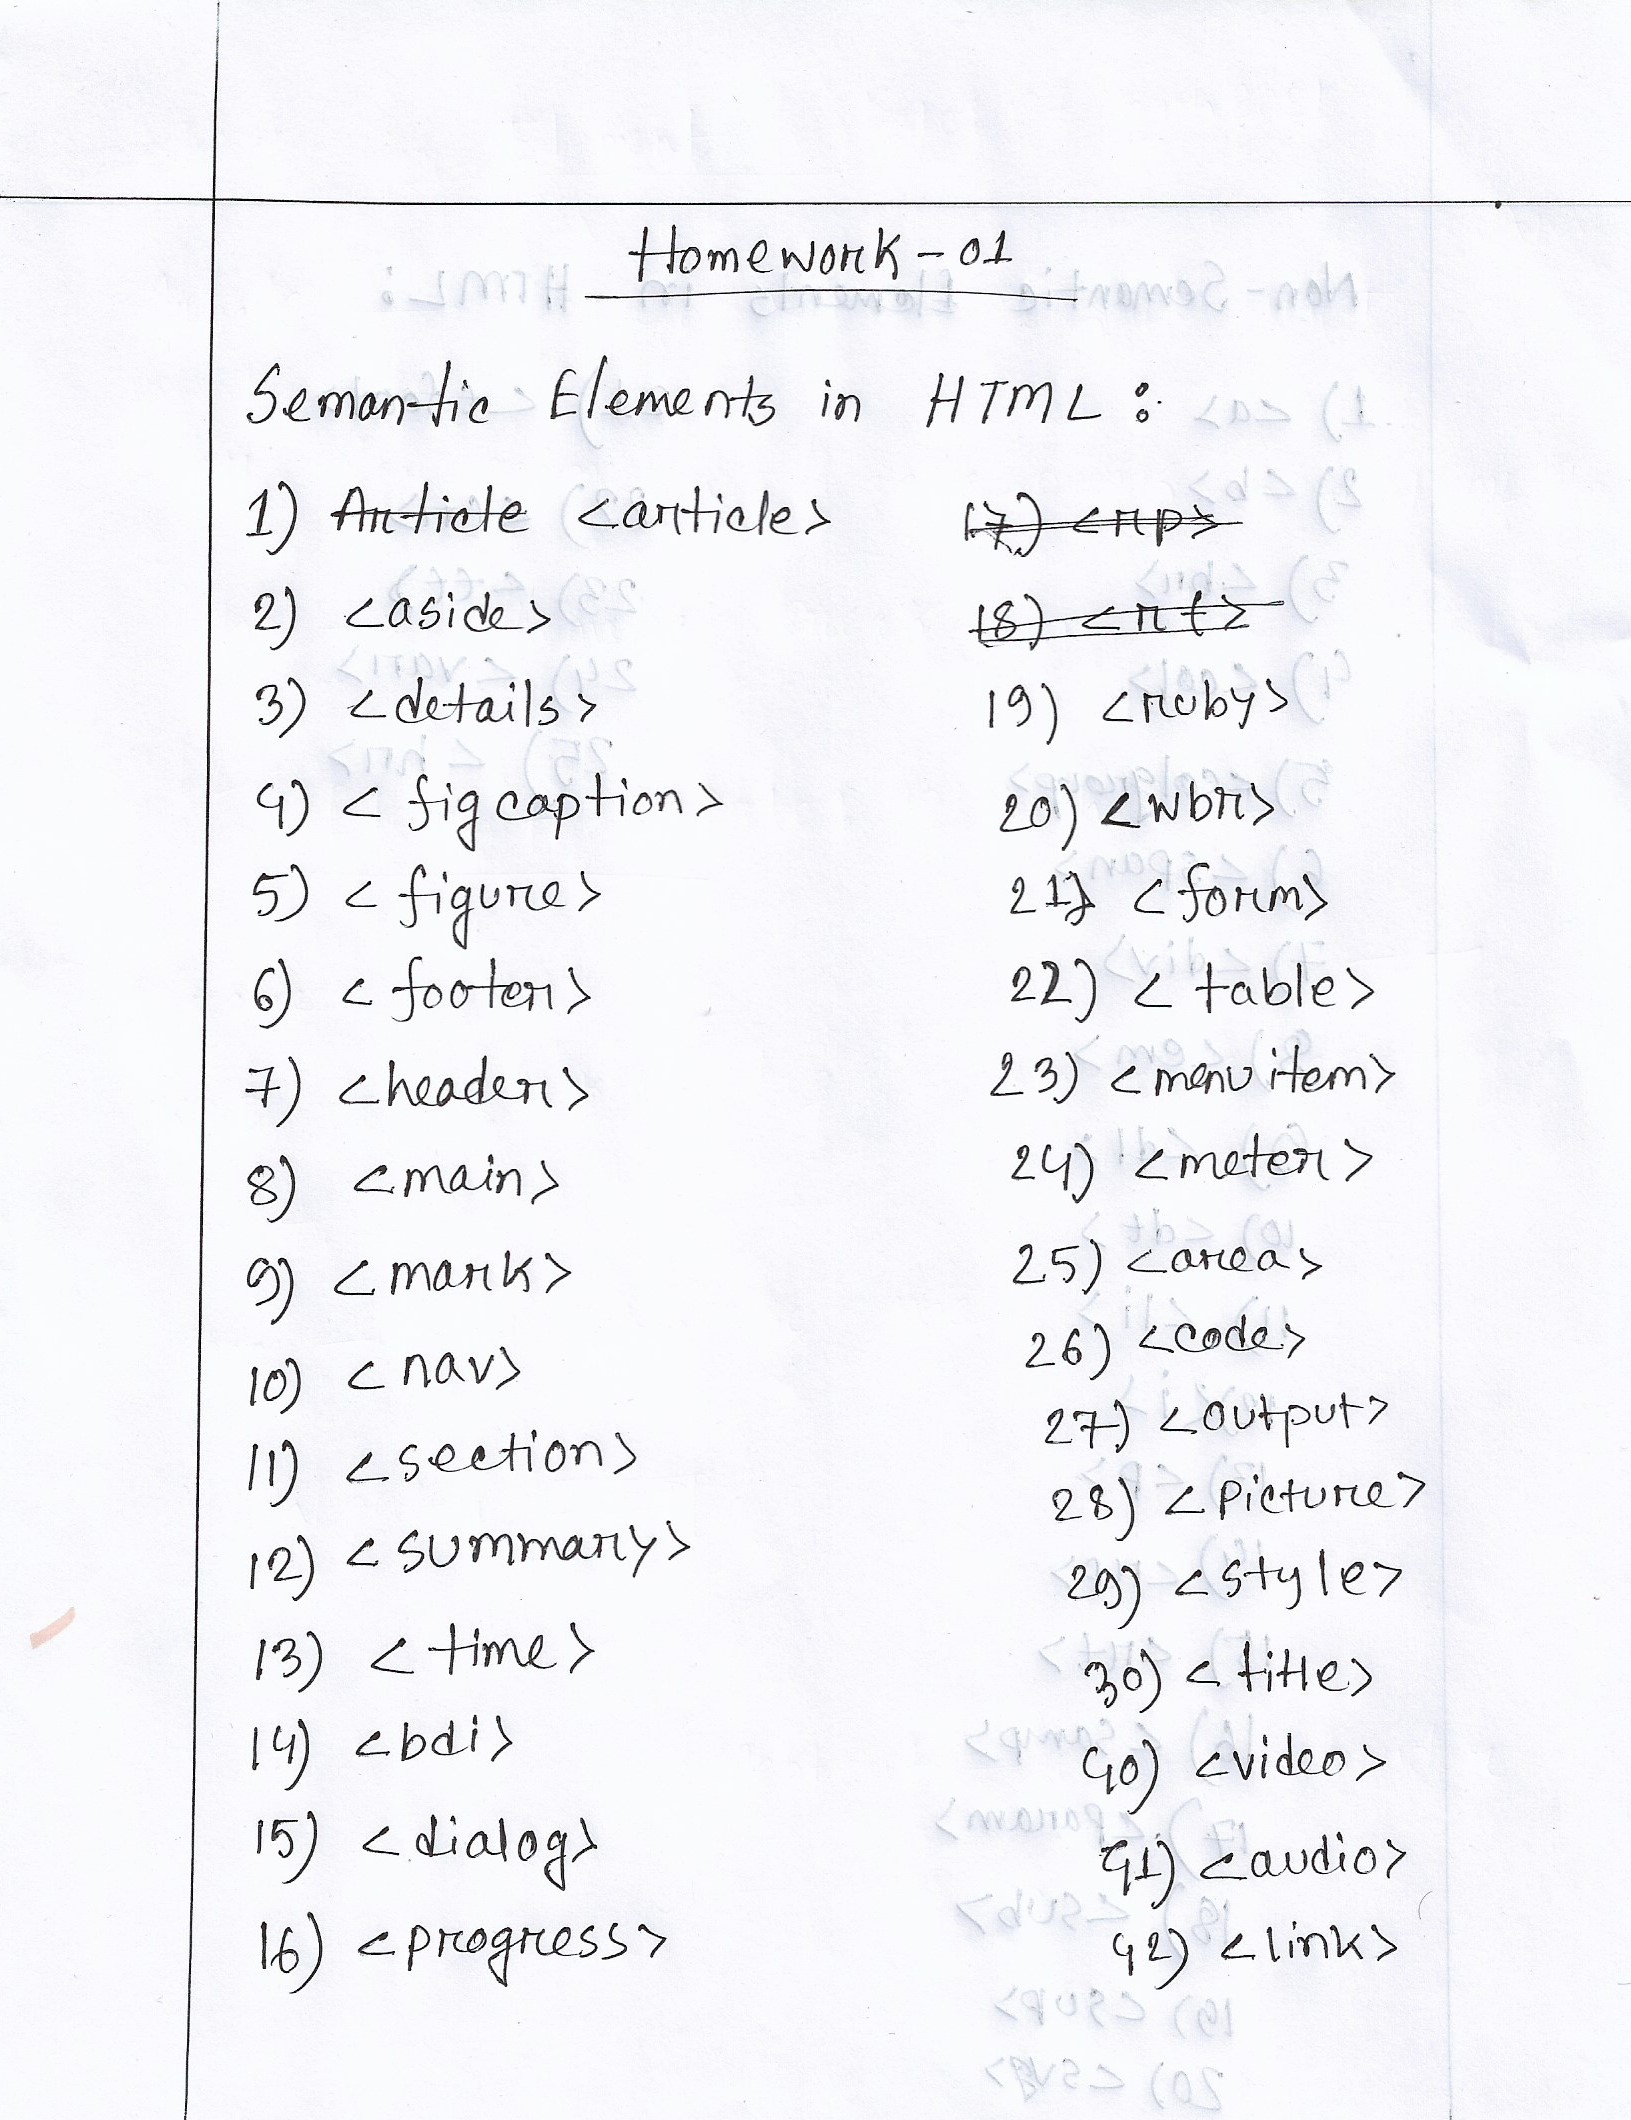 Homework - 01
Semantic Elements in HTML :
1) Article <article>
2) <aside>
3) <details>
4) <figcaption>
5) <figure>
6) <footer>
7) <header>
8) <main>
9) <mark>
10) <nav>
11) <section>
12) <summary>
13) <time>
14) <bdi>
15) <dialog>
16) <progress>
17) <rp>
18) <rt>
19) <ruby>
20) <wbr>
21) <form>
22) <table>
23) <menuitem>
24) <meter>
25) <area>
26) <code>
27) <output>
28) <picture>
29) <style>
30) <title>
40) <video>
41) <audio>
42) <link>